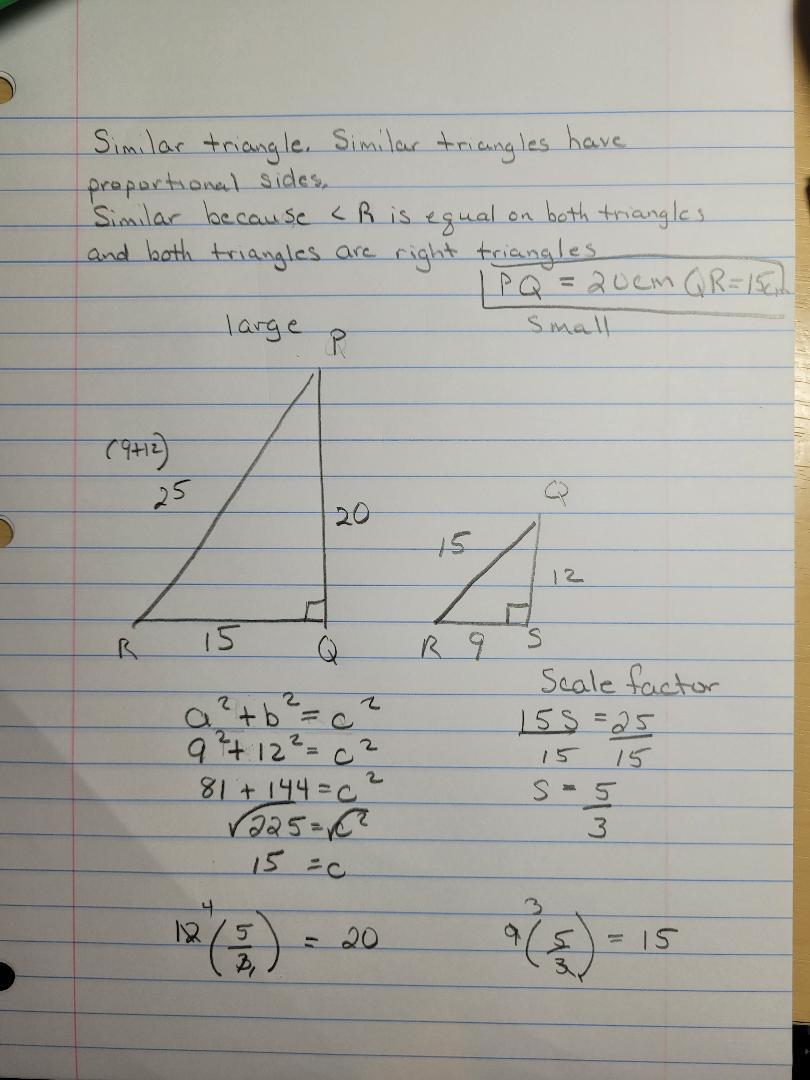 Similar triangle. Similar triangles have
proportional sides.
Similar because < R is equal on both triangles
and both triangles are right triangles
PQ = 20cm QR=15cm
large
small
P
(9+12)
25
20
R
15
Q
Q
15
12
R
9
S
a² + b² = c²
9² + 12² = c²
81 + 144 = c²
√225 = √c²
15 = c
Scale factor
15S = 25
15 15
S = 5
3
12 4 (5/3 1) = 20
9 3 (5/3 1) = 15